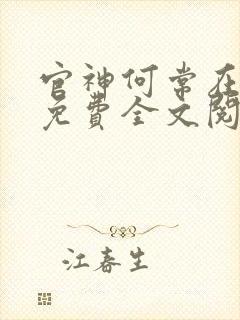 官神何常在
免費全文閱
江春生